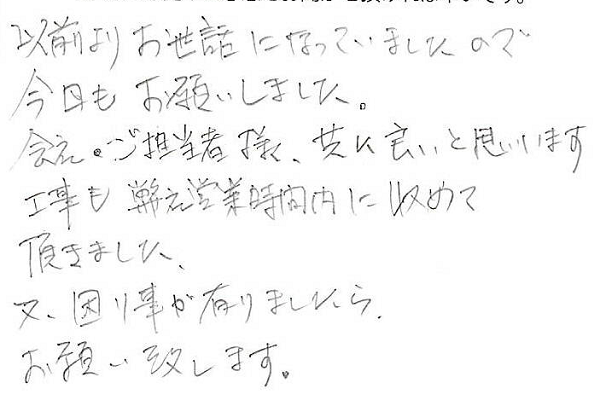 以前よりお世話になっていましたので
今回もお願いしました。
会社・ご担当者様、共に良いと思います
工事も弊社営業時間内に収めて
頂きました、
又、困り事が有りましたら、
お願い致します。